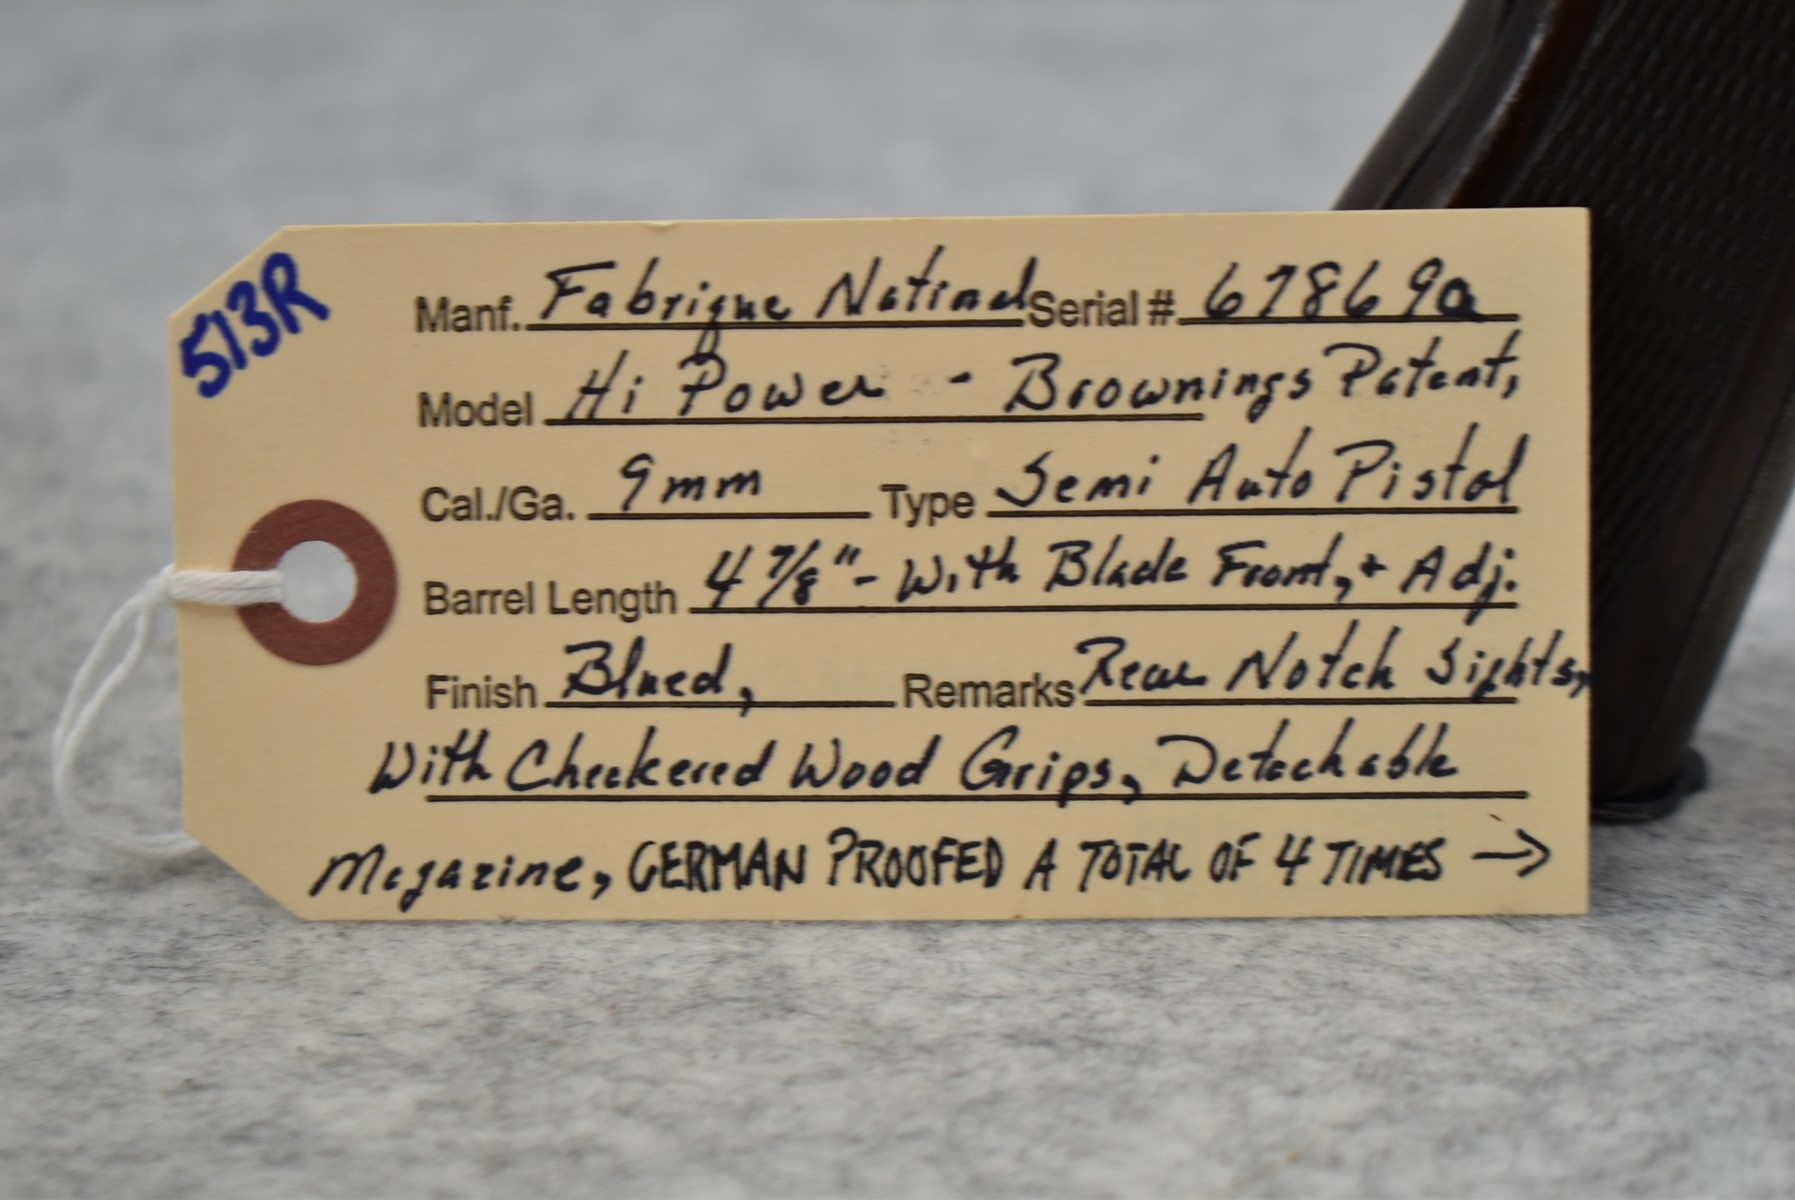 513R
Manf. Fabrique Natinal Serial # 67869a
Model Hi Power - Brownings Patent,
Cal./Ga. 9mm Type Semi Auto Pistol
Barrel Length 4 7/8" - With Blade Front, + Adj.
Finish Blued, Remarks Rear Notch Sights,
With Checkered Wood Grips, Detachable
Magazine, GERMAN PROOFED A TOTAL OF 4 TIMES →